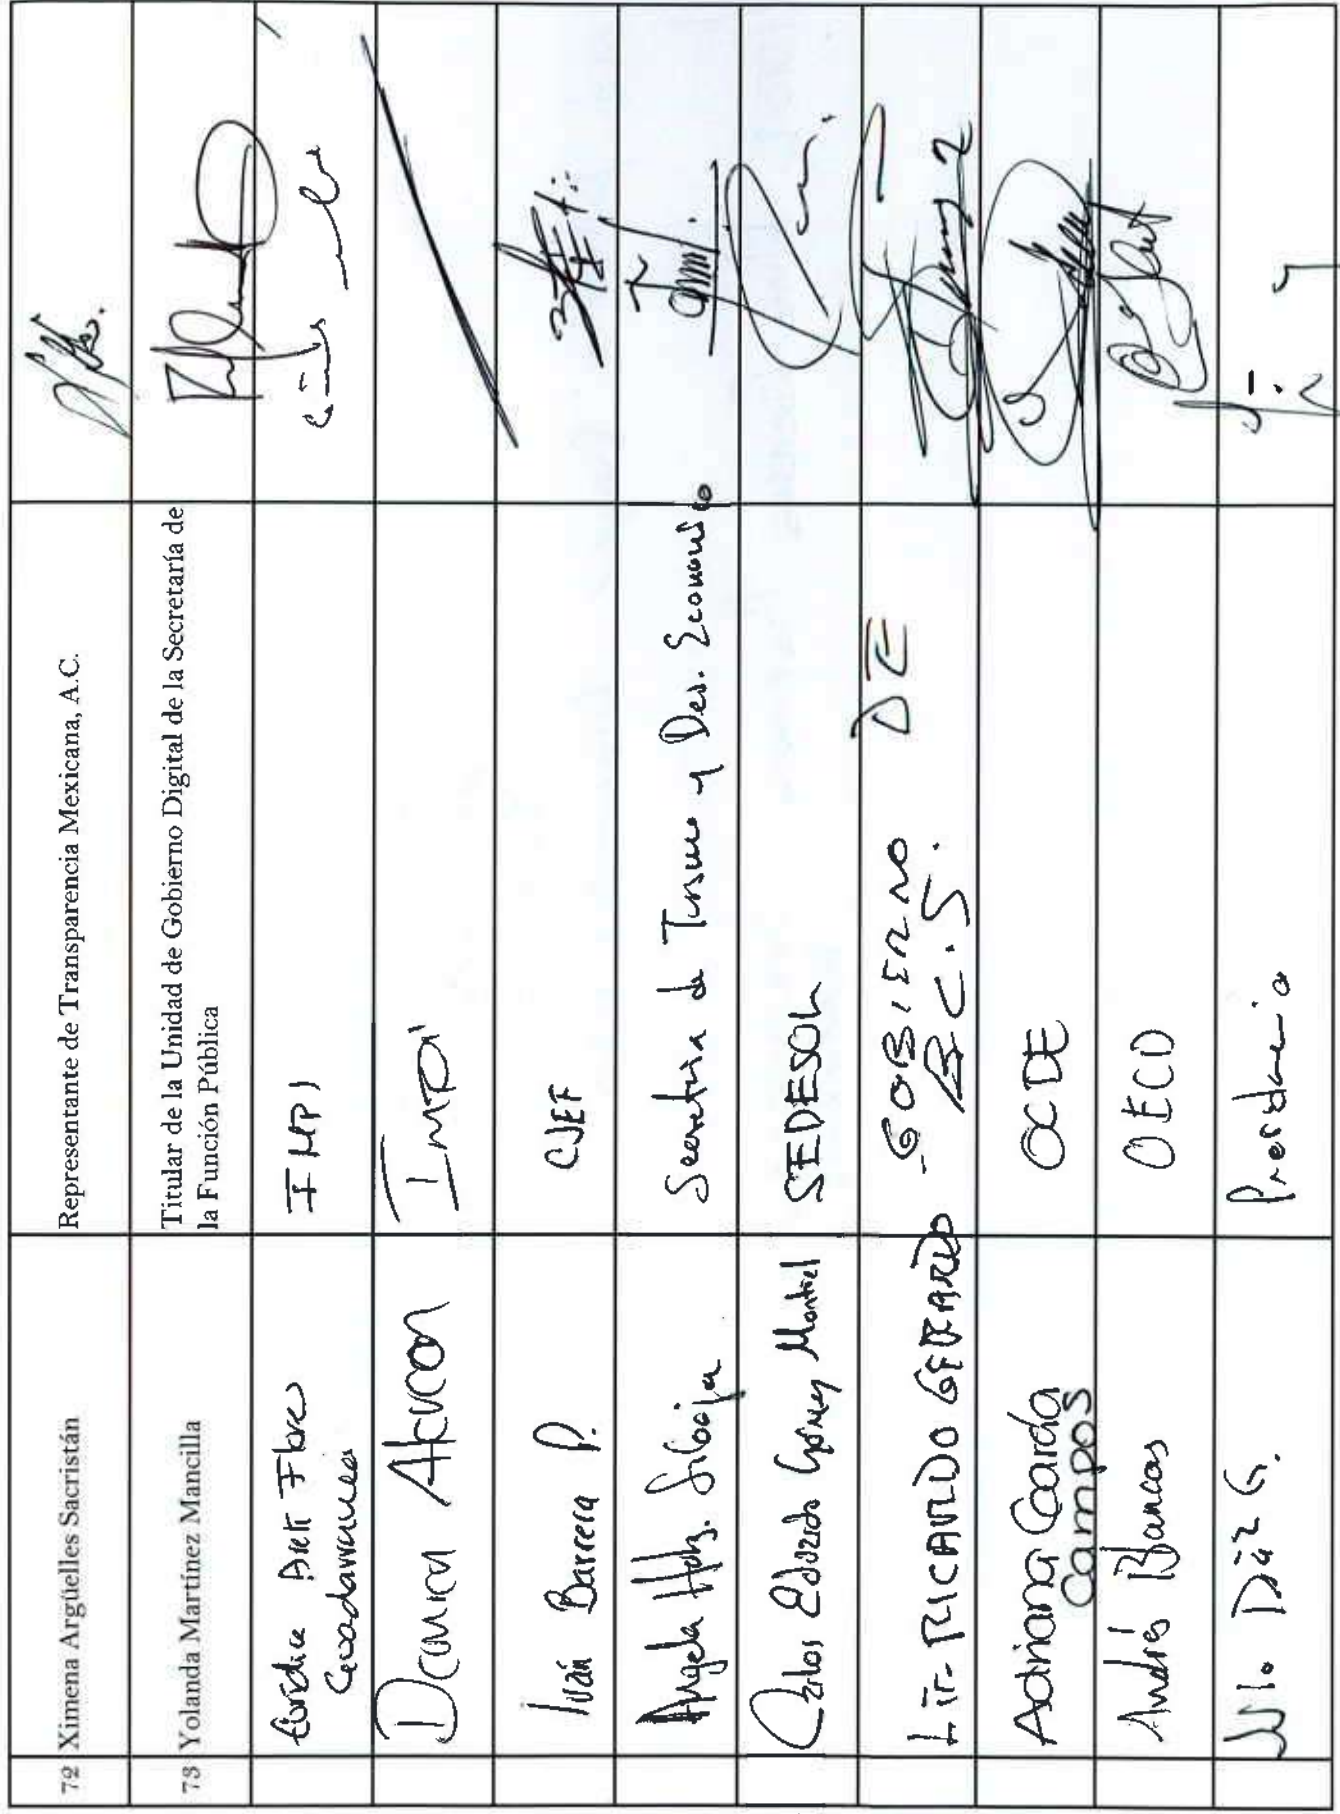 72 Ximena Argüelles Sacristán
Representante de Transparencia Mexicana, A.C.
73 Yolanda Martínez Mancilla
Titular de la Unidad de Gobierno Digital de la Secretaría de
la Función Pública
Flores
IMPI
IMPI
Iván Barrera P.
CJEF
Angela Hdz.
Secretaria de Turismo y Des. Economico
Carlos Eduardo Gómez Montiel
SEDESOL
Lic. RICARDO GERARDO
GOBIERNO DE
B.C.S.
Adriana García
Campos
OCDE
Andrés Blancas
OECD
Julio Díaz G.
Presidencia